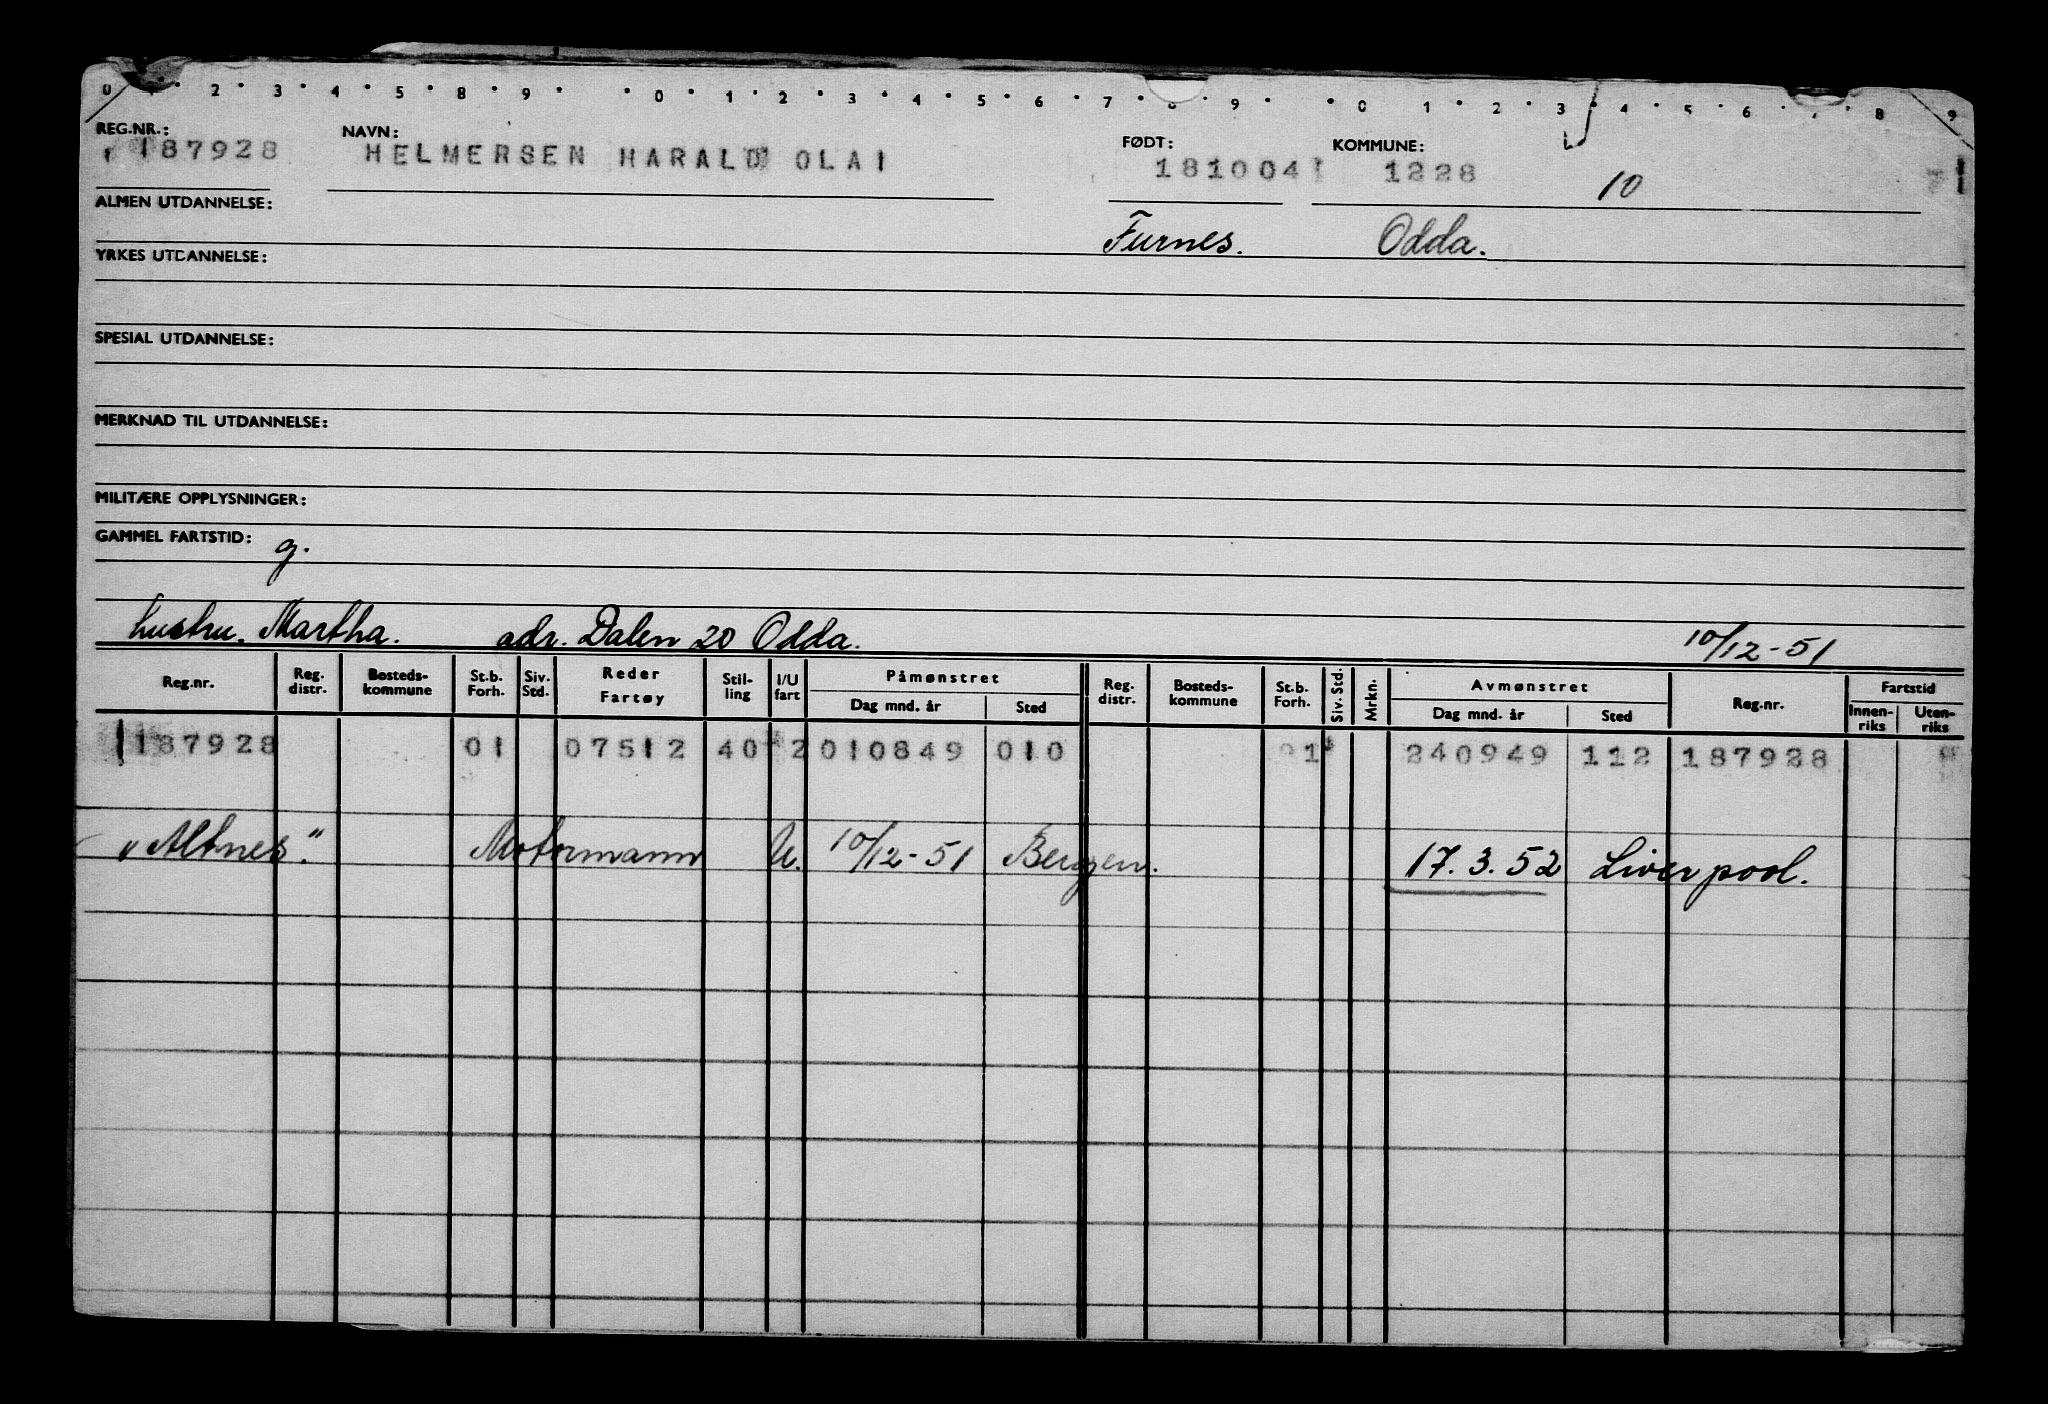 0 1 2 3 4 5 8 9 0 1 2 3 4 5 6 7 8 9 0 1 2 3 4 5 6 7 8 9
REG.NR.: NAVN: FØDT: KOMMUNE:
187928 HELMERSEN HARALD OLAI 181004 1228 10 71
ALMEN UTDANNELSE: Furnes. Odda.
YRKES UTDANNELSE:
SPESIAL UTDANNELSE:
MERKNAD TIL UTDANNELSE:
MILITÆRE OPPLYSNINGER:
GAMMEL FARTSTID: g.
hustru. Martha. adr. Dalen 20 Odda. 10/12-51
Reg.nr. Reg. distr. Bosteds-kommune St.b. Forh. Siv. Std. Reder Fartøy Stil-ling I/U fart Påmønstret Dag mnd. år Sted Reg. distr. Bosteds-kommune St.b. Forh. Siv. Std. Mrkn. Avmønstret Dag mnd. år Sted Reg.nr. Fartstid Innen-riks Uten-riks
187928 01 07512 40 2 010849 010 01 240949 112 187928
"Altnes". Motormann U. 10/12-51 Bergen. 17.3.52 Liverpool.